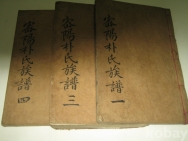 密陽朴氏族譜 一
密陽朴氏族譜 三
密陽朴氏族譜 四